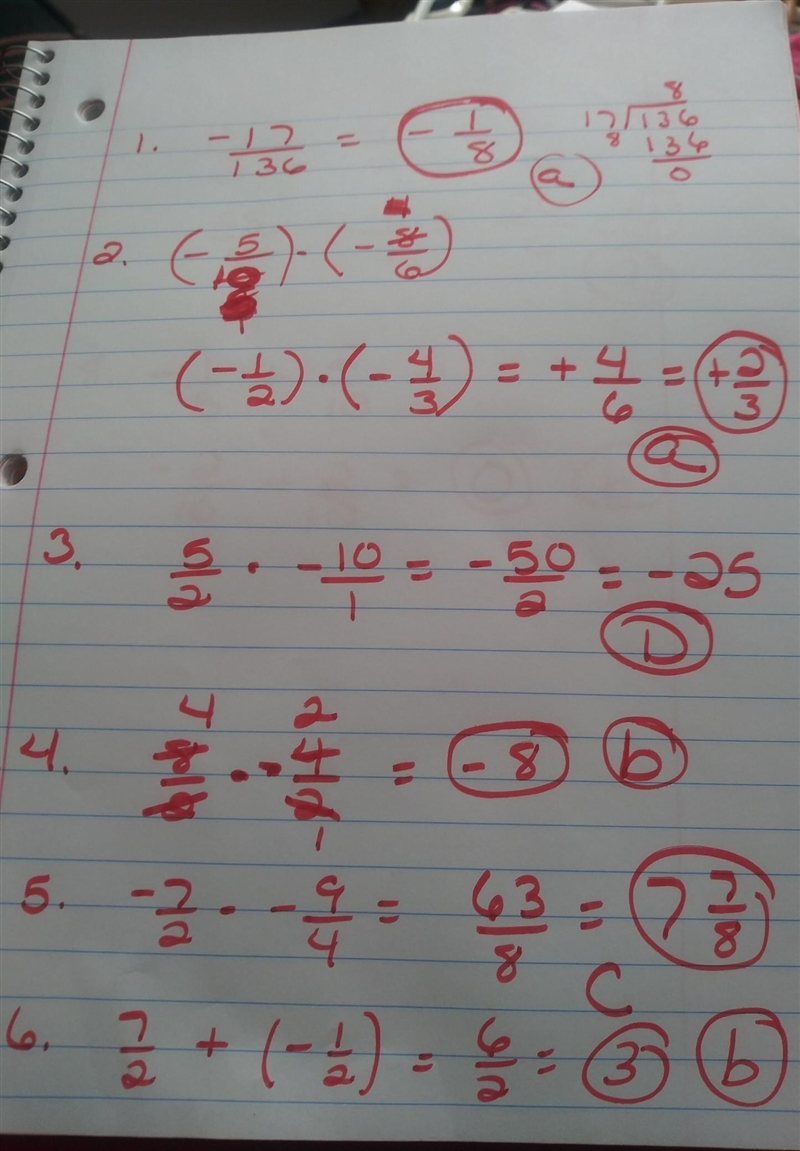 1. -17/136 = - 1/8
8
17)136
8 136
0
a
2. (- 5/10) · (- 8/6)
1
(- 1/2) · (- 4/3) = + 4/6 = + 2/3
a
3. 5/2 · -10/1 = -50/2 = -25
D
4 2
4. 8/2 · - 4/2 = -8 b
1
5. -7/2 · -9/4 = 63/8 = 7 7/8
C
6. 7/2 + (- 1/2) = 6/2 = 3 b